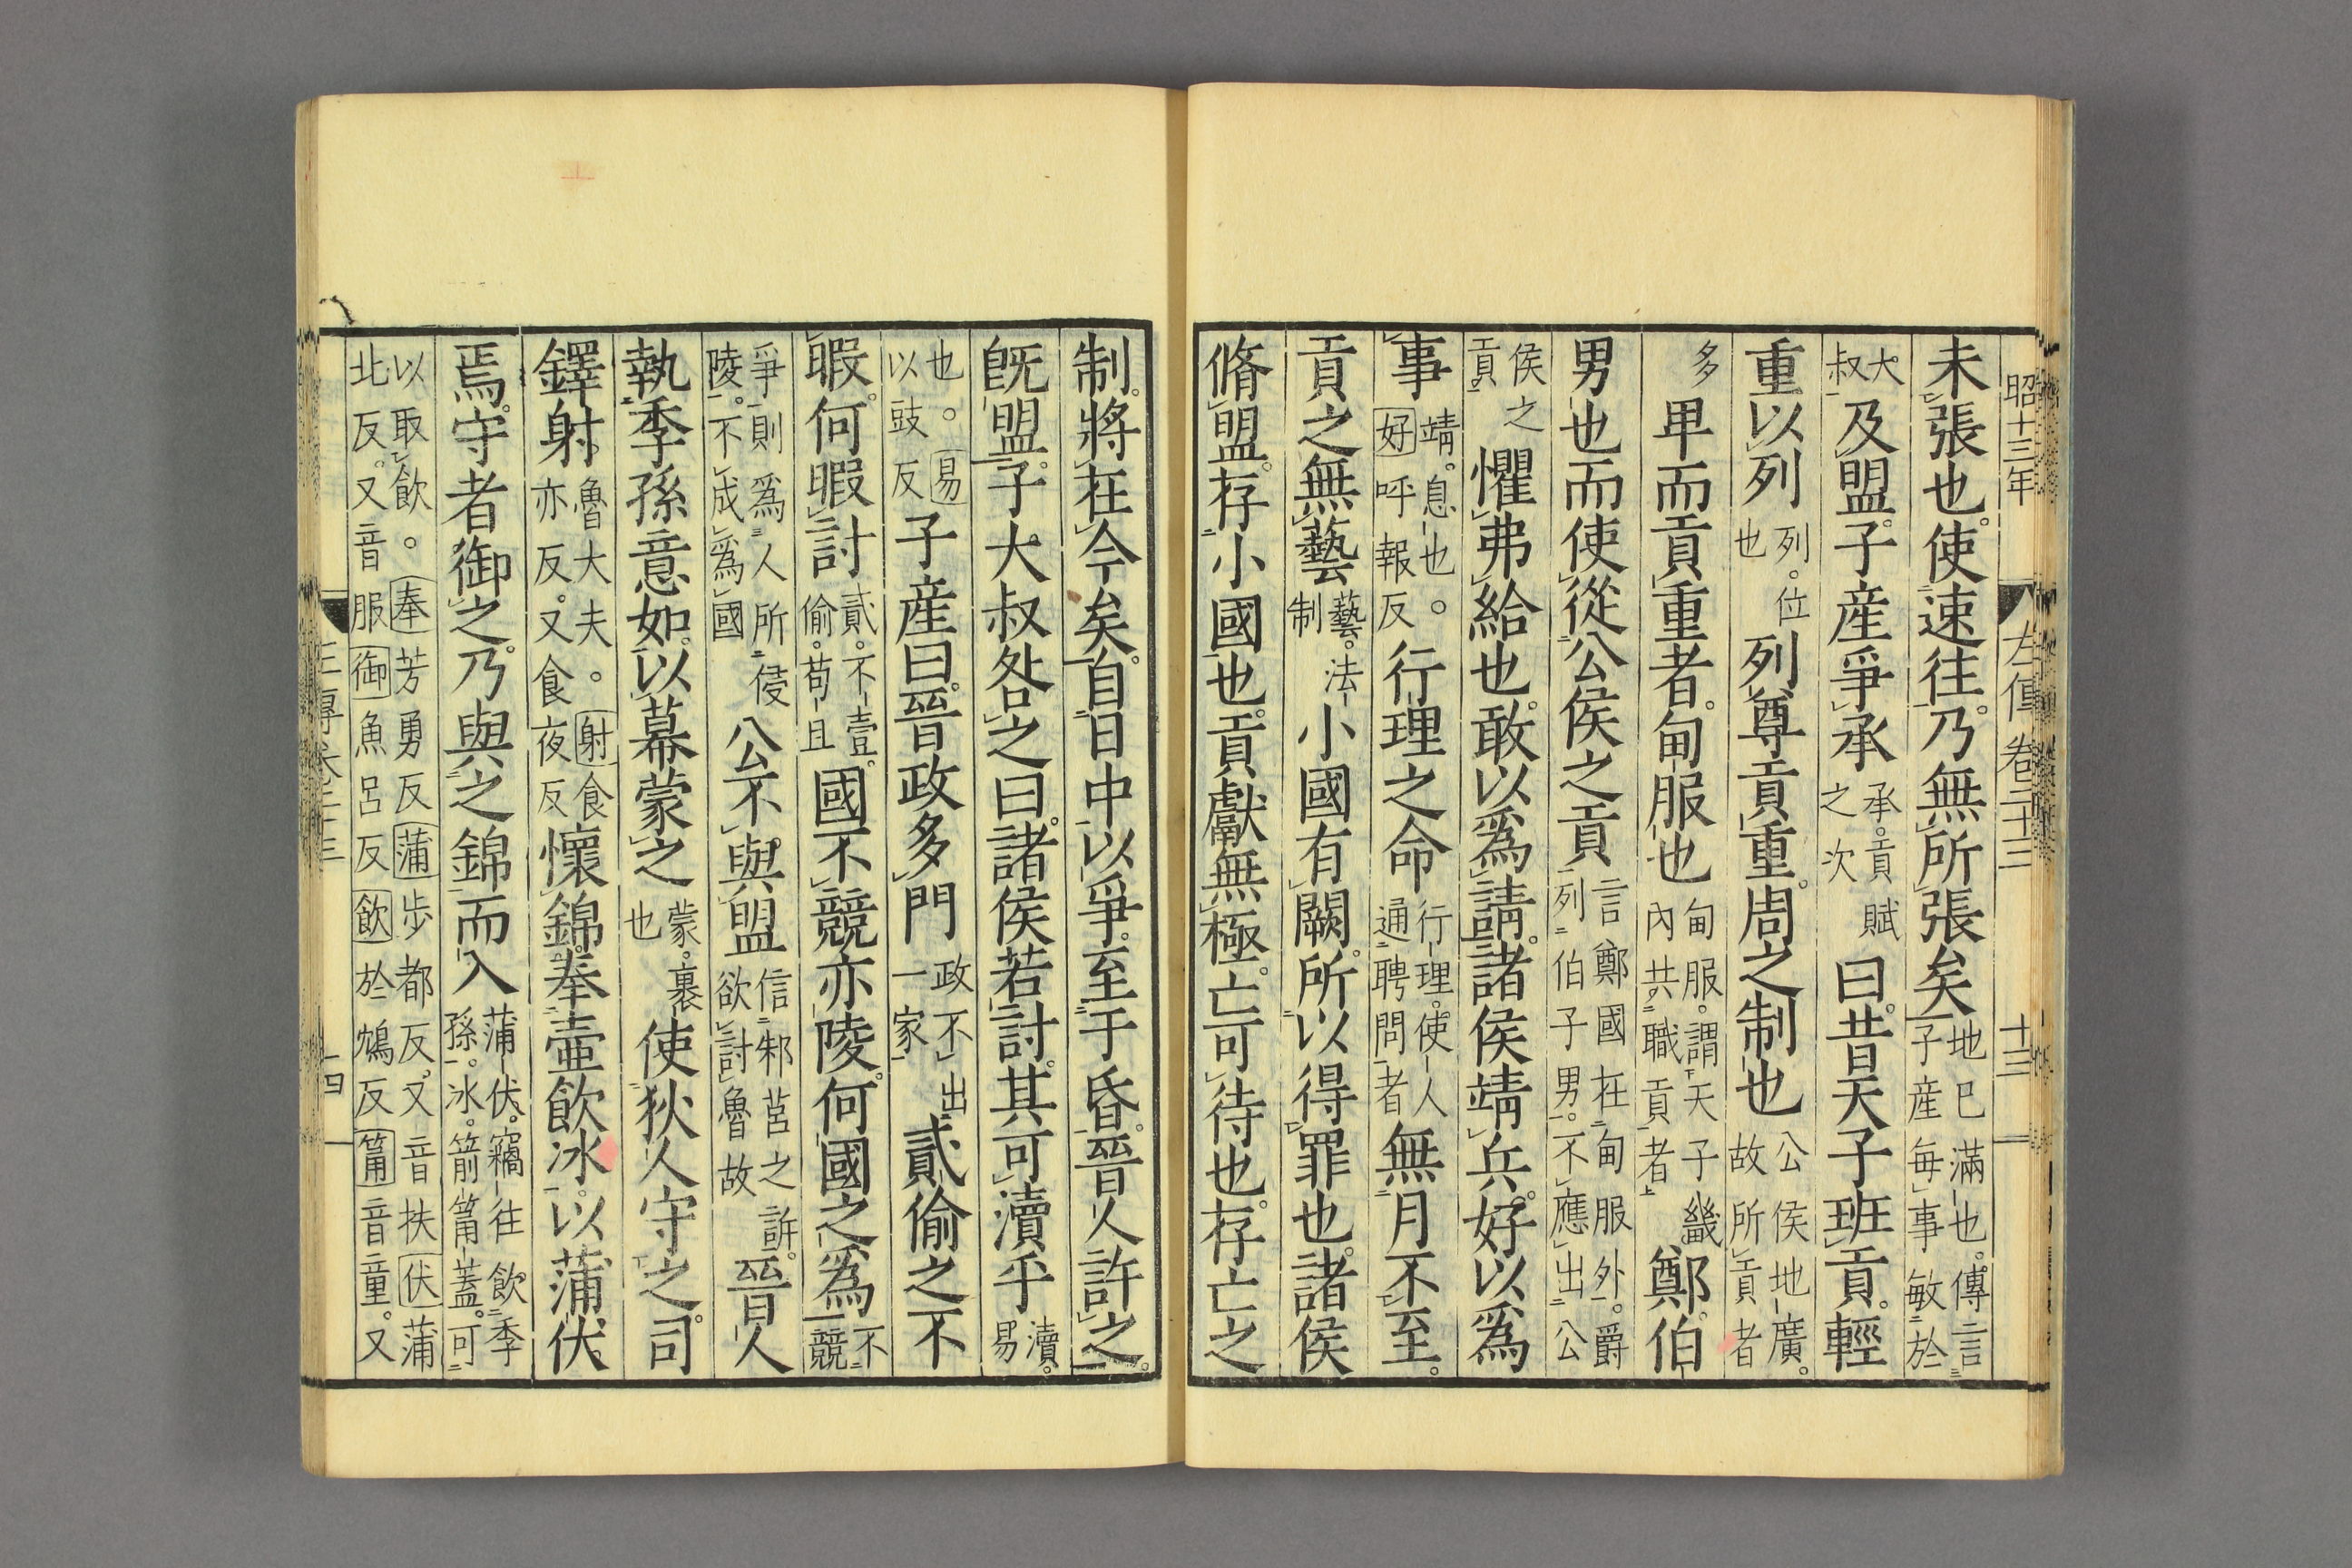 昭十三年 左傳卷二十三 十三
未張也。使速往。乃無所張矣地已滿也。傳言子産每事敏於
大叔及盟。子産爭承承。貢賦之次曰。昔天子班貢。輕
重以列列。位也列尊貢重。周之制也公侯地廣。故所貢者
多卑而貢重者。甸服也甸服。謂天子畿內共職貢者鄭。伯
男也而使從公侯之貢言鄭國在甸服外。爵列伯子男。不應出公
侯之貢。懼弗給也。敢以爲請。諸侯靖兵。好以爲
事靖。息也。好呼報反行理之命行理。使人通聘問者無月不至。
貢之無藝藝。法制小國有闕。所以得罪也。諸侯
脩盟。存小國也。貢獻無極。亡可待也。存亡之
制。將在今矣。自日中以爭。至于昏。晉人許之。
既盟。子大叔咎之曰。諸侯若討。其可瀆乎瀆。易
也。易以豉反子産曰。晉政多門政不出一家貳偷之不
暇。何暇討貳。不壹。偷。苟且國不競亦陵。何國之爲不競
爭則爲人所侵陵。不成爲國公不與盟信邾莒之訴。欲討魯故晉人
執季孫意如。以幕蒙之蒙。裹也使狄人守之。司
鐸射。魯大夫。射食亦反。又食夜反懷錦。奉壺飲冰。以蒲伏
焉。守者御之。乃與之錦而入蒲伏。竊往飲季孫。冰。箭筩蓋。可
以取飲。奉芳勇反蒲步都反。又音扶伏蒲北反。又音服御魚呂反飲於鴆反筩音童。又